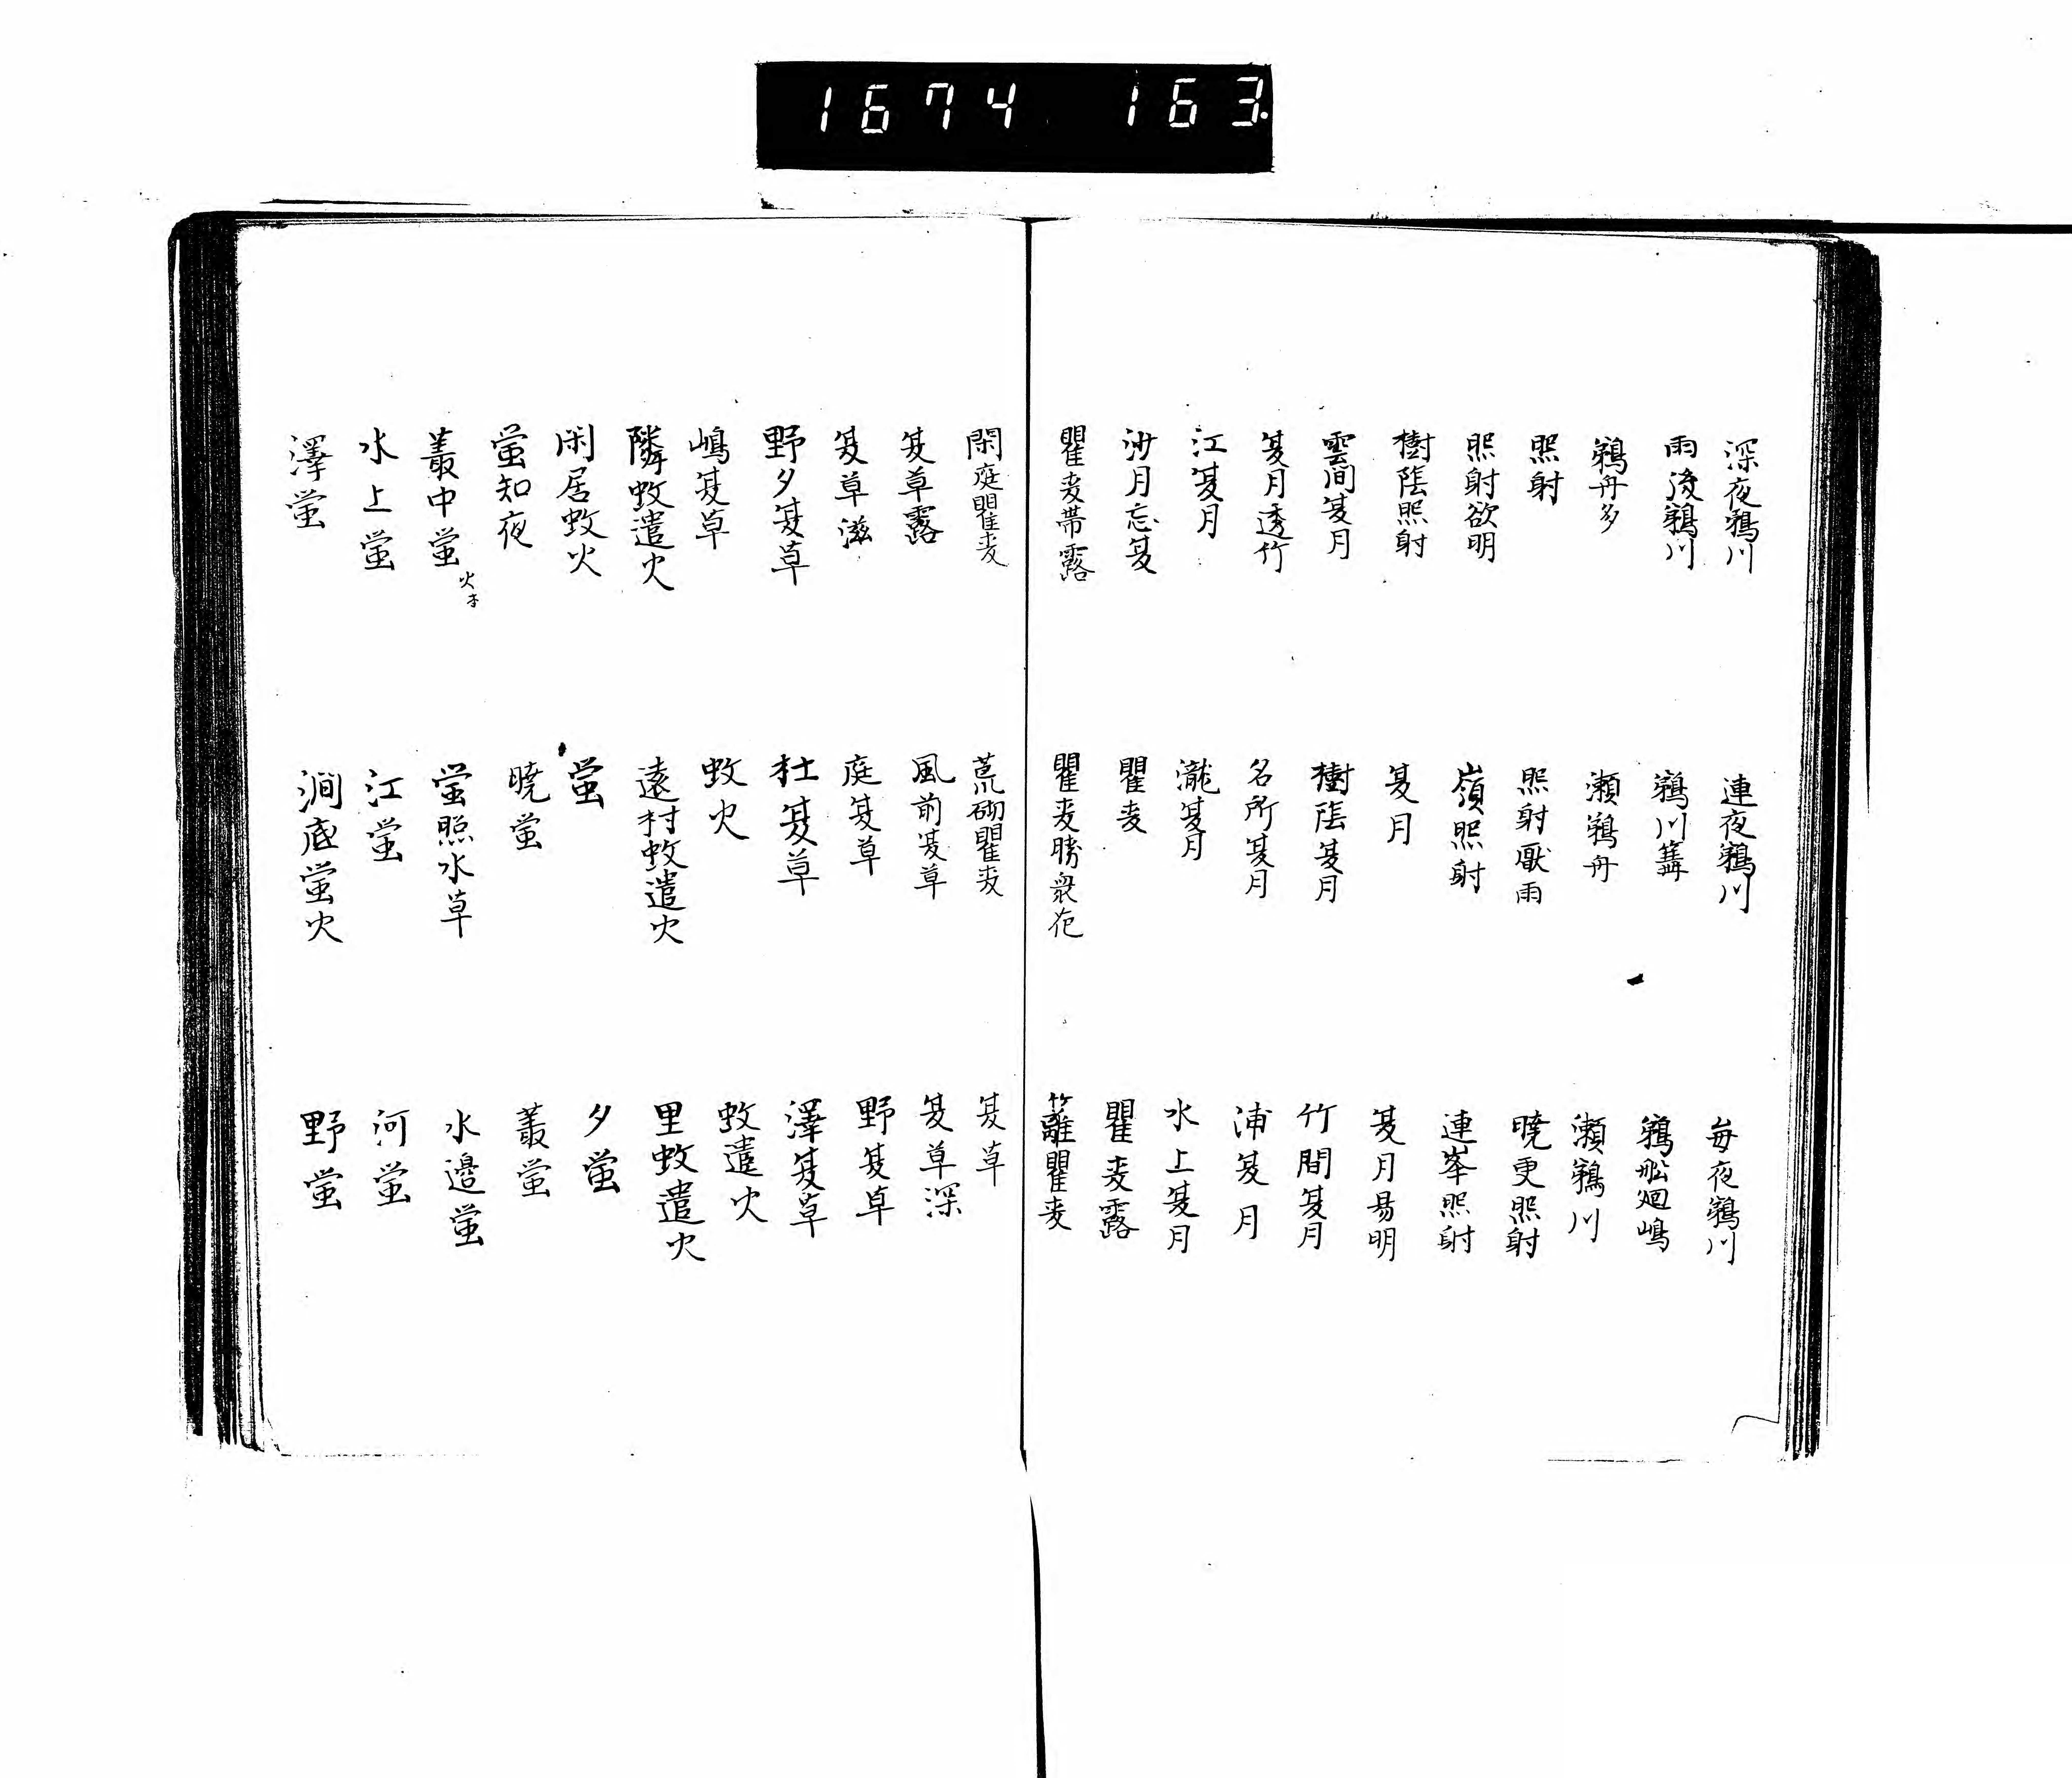 1674 163
深夜鵜川 連夜鵜川 毎夜鵜川
雨後鵜川 鵜川篝 鵜舩廻嶋
鵜舟多 瀬鵜舟 瀬鵜川
照射 照射厭雨 暁更照射
照射欲明 嶺照射 連峯照射
樹陰照射 夏月 夏月易明
雲間夏月 樹陰夏月 竹間夏月
夏月透竹 名所夏月 浦夏月
江夏月 瀧夏月 水上夏月
沙月忘夏 瞿麦 瞿麦露
瞿麦帯露 瞿麦勝衆花 籬瞿麦
閑庭瞿麦 荒砌瞿麦 夏草
夏草露 風前夏草 夏草深
夏草滋 庭夏草 野夏草
野夕夏草 杜夏草 澤夏草
嶋夏草 蚊火 蚊遣火
隣蚊遣火 遠村蚊遣火 里蚊遣火
閑居蚊火 蛍 夕蛍
蛍知夜 暁蛍 叢蛍
叢中蛍火 蛍照水草 水邉蛍
水上蛍 江蛍 河蛍
澤蛍 澗底蛍火 野蛍